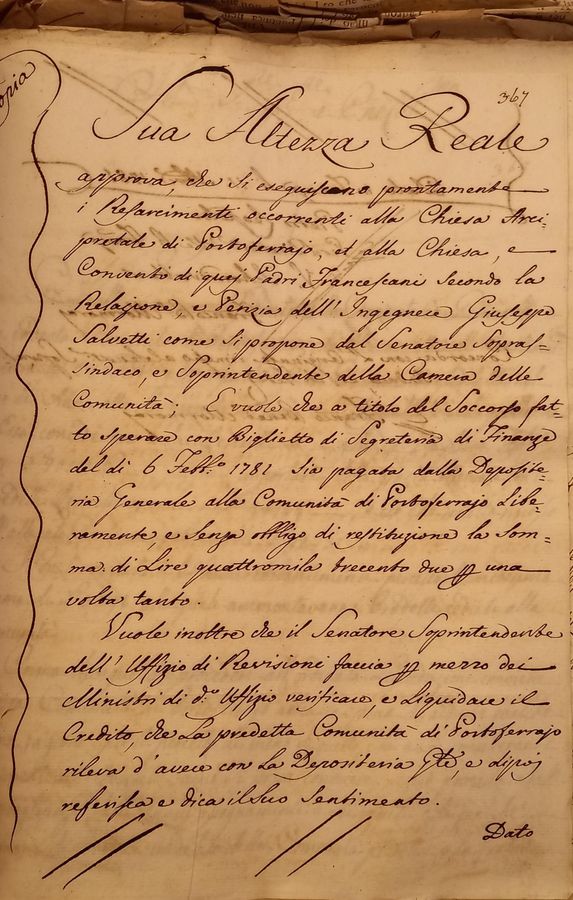 367
Copia
Sua Altezza Reale
approva, che si eseguiscano prontamente
i Resarcimenti occorrenti alla Chiesa Arci=
pretale di Portoferrajo, et alla Chiesa, e
Convento di quej Padri Francescani secondo la
Relazione, e Perizia dell' Ingegnere Giuseppe
Salvetti come si propone dal Senatore Sopras=
sindaco, e Soprintendente della Camera delle
Comunità; E vuole che a titolo del Soccorso fat=
to sperare con Biglietto di Segreteria di Finanze
del dì 6 Febb.º 1781 sia pagata dalla Deposite=
ria Generale alla Comunità di Portoferrajo Libe=
ramente, e senza obbligo di restituzione la som=
ma di Lire quattromila trecento due p una
volta tanto.
Vuole inoltre che il Senatore Soprintendente
dell' Uffizio di Revisioni faccia p mezzo dei
Ministri di d.º Uffizio verificare, e Liquidare il
Credito, che La predetta Comunità di Portoferrajo
rileva d'avere con La Depositeria Gle, e dipoj
referisca e dica il suo sentimento.
Dato